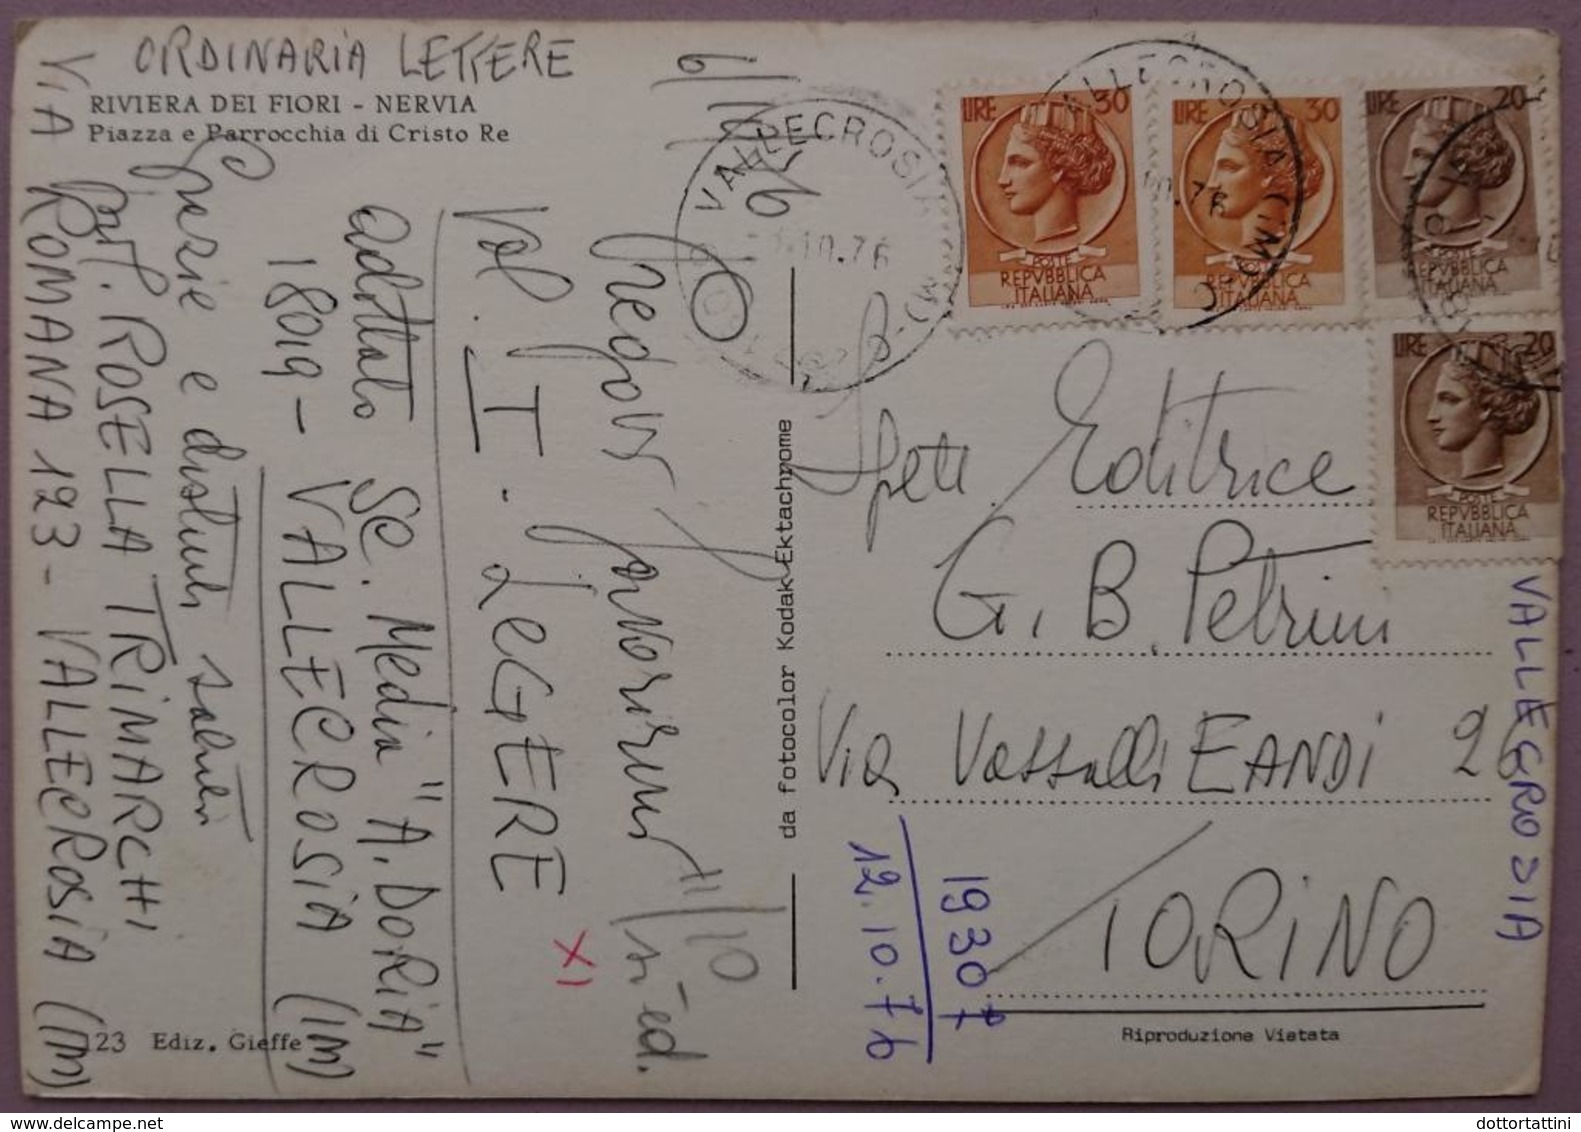 ORDINARIA LETTERE
RIVIERA DEI FIORI - NERVIA
Piazza e Parrocchia di Cristo Re
6/10/76
Vol. I. LEGERE
adottato Sc. Media "A. DORIA"
18019 - VALLECROSIA (IM)
Grazie e distinti saluti
Prof. ROSELLA TRIMARCHI
VIA ROMANA 123 - VALLECROSIA (IM)
11/10
XI
123 Ediz. Gieffe
da fotocolor Kodak-Ektachrome
VALLECROSIA (IM)
.10.76
LIRE 30
POSTE
REPVBBLICA
ITALIANA
LIRE 30
POSTE
REPVBBLICA
ITALIANA
LIRE 20
POSTE
REPVBBLICA
ITALIANA
LIRE 20
POSTE
REPVBBLICA
ITALIANA
VALLECROSIA (IM)
Spett. Editrice
G. B. Petrini
Via Vassalli EANDI 26
TORINO
19307
12.10.76
VALLEGROSIA
Riproduzione Vietata
dottortattini